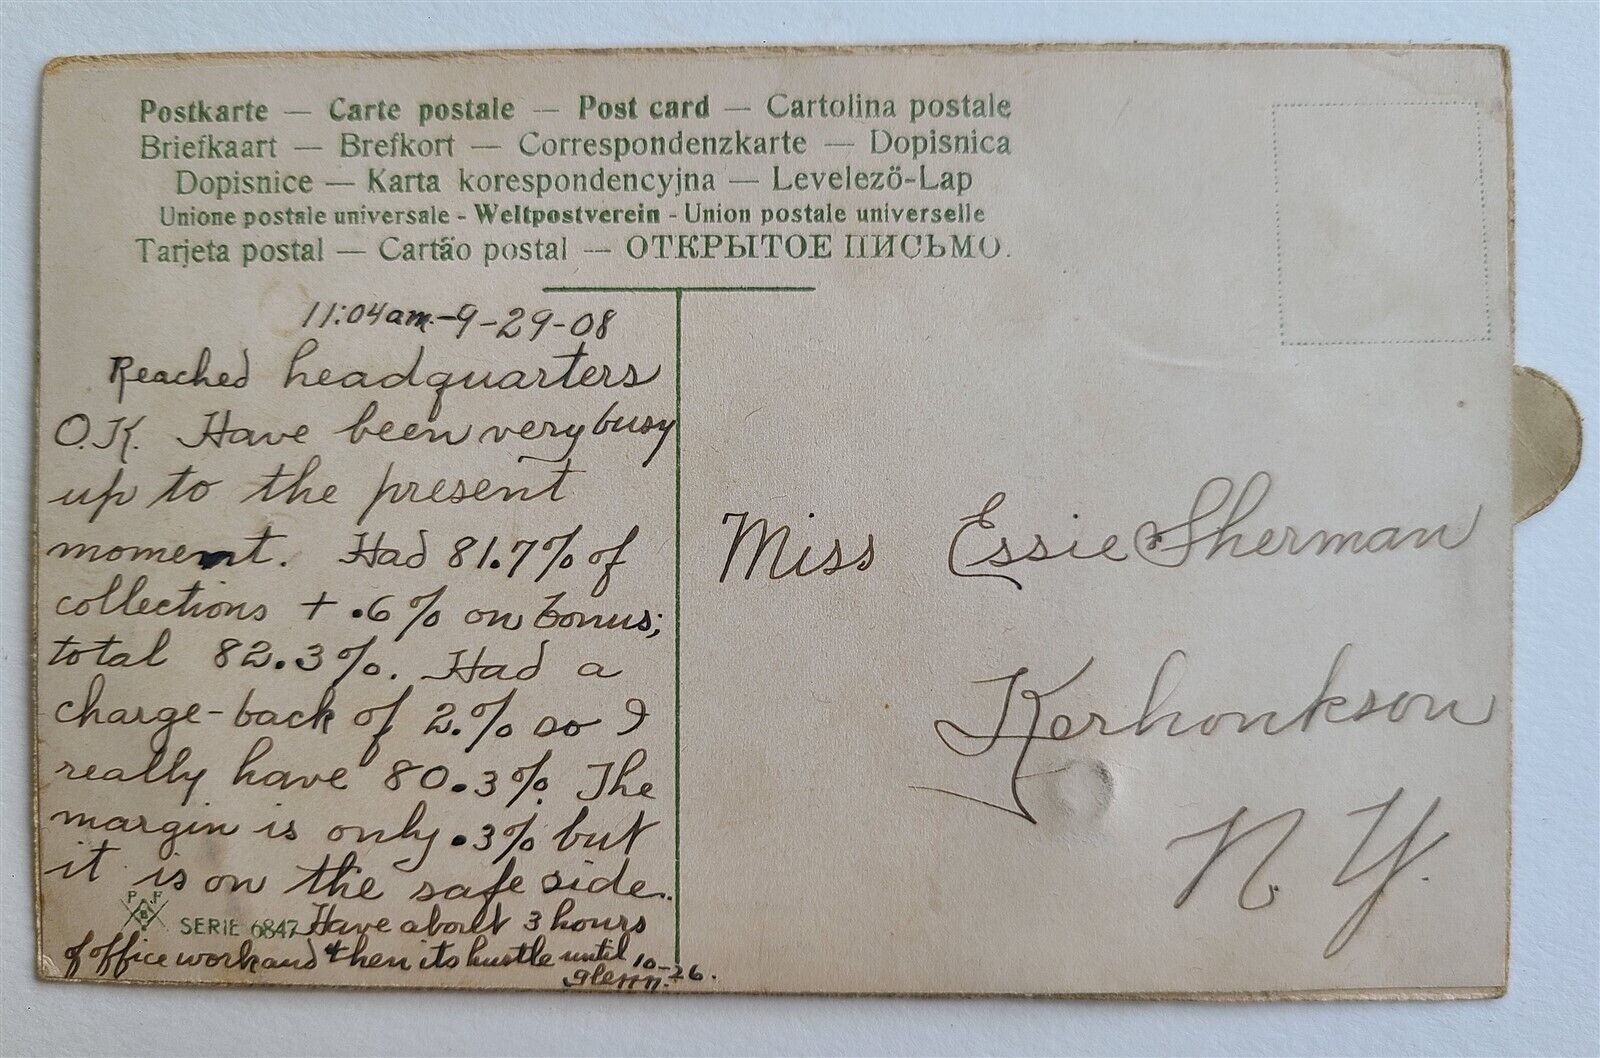 Postkarte — Carte postale — Post card — Cartolina postale
Briefkaart — Brefkort — Correspondenzkarte — Dopisnica
Dopisnice — Karta korespondencyjna — Levelező-Lap
Unione postale universale - Weltpostverein - Union postale universelle
Tarjeta postal — Cartão postal — ОТКРЫТОЕ ПИСЬМО.
11:04am.-9-29-08
Reached headquarters
O.K. Have been very busy
up to the present
moment. Had 81.7% of
collections + .6% on bonus;
total 82.3%. Had a
charge-back of 2.% so I
really have 80.3%. The
margin is only .3% but
it is on the safe side.
P F
B
SERIE 6847 Have about 3 hours
of office work and then its hustle until 10-26.
Glenn.
Miss Essie Sherman
Kerhonkson
N. Y.